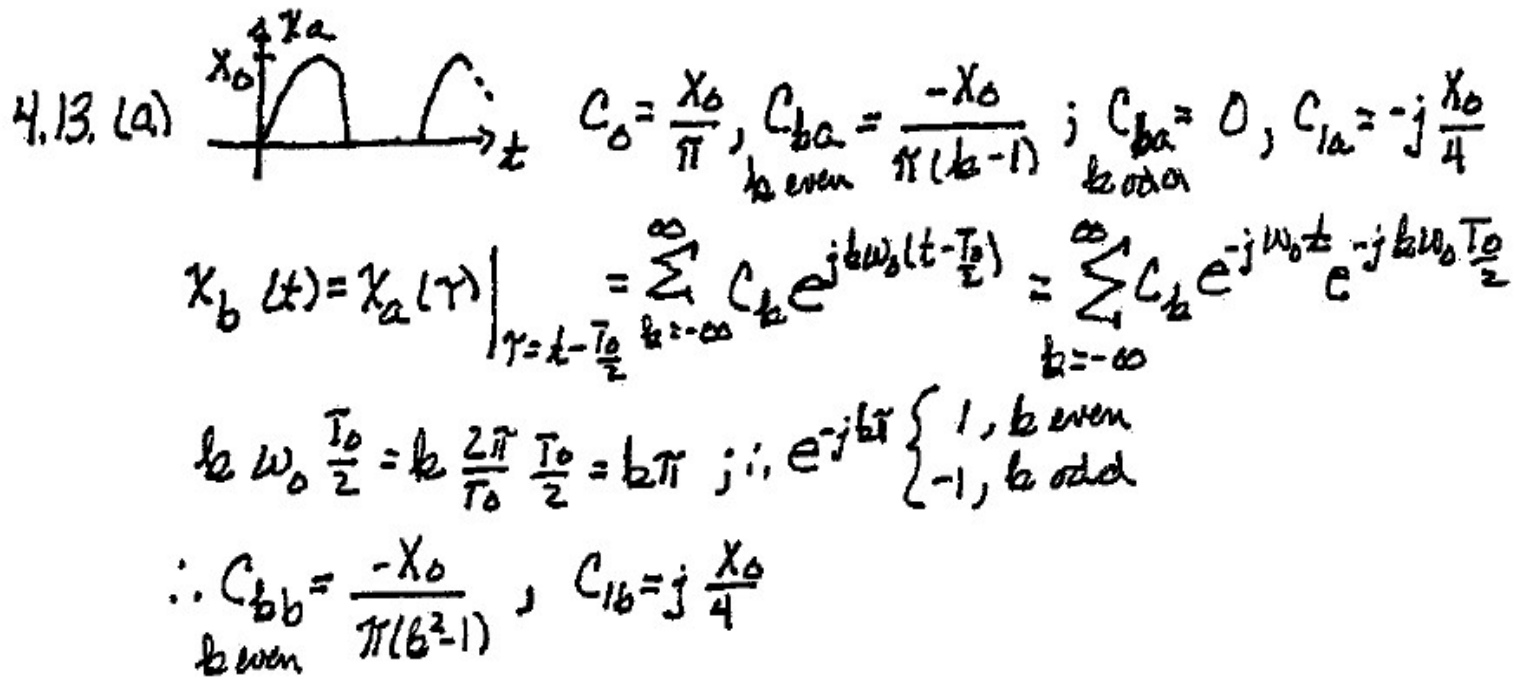 4.13. (a) X₀ xₐ t C₀ = X₀/π, C_ka = -X₀/(π(k-1)) ; C_ka = 0, C_1a = -j X₀/4
k even k odd
x_b(t) = x_a(τ)|_{τ = t - T₀/2} = Σ_{k=-∞}^{∞} C_k e^{jkω₀(t - T₀/2)} = Σ_{k=-∞}^{∞} C_k e^{-jω₀t} e^{-jkω₀ T₀/2}
k ω₀ T₀/2 = k 2π/T₀ T₀/2 = kπ ; ∴ e^{-jkπ} { 1, k even
-1, k odd
∴ C_kb = -X₀/(π(k²-1)) , C_1b = j X₀/4
k even